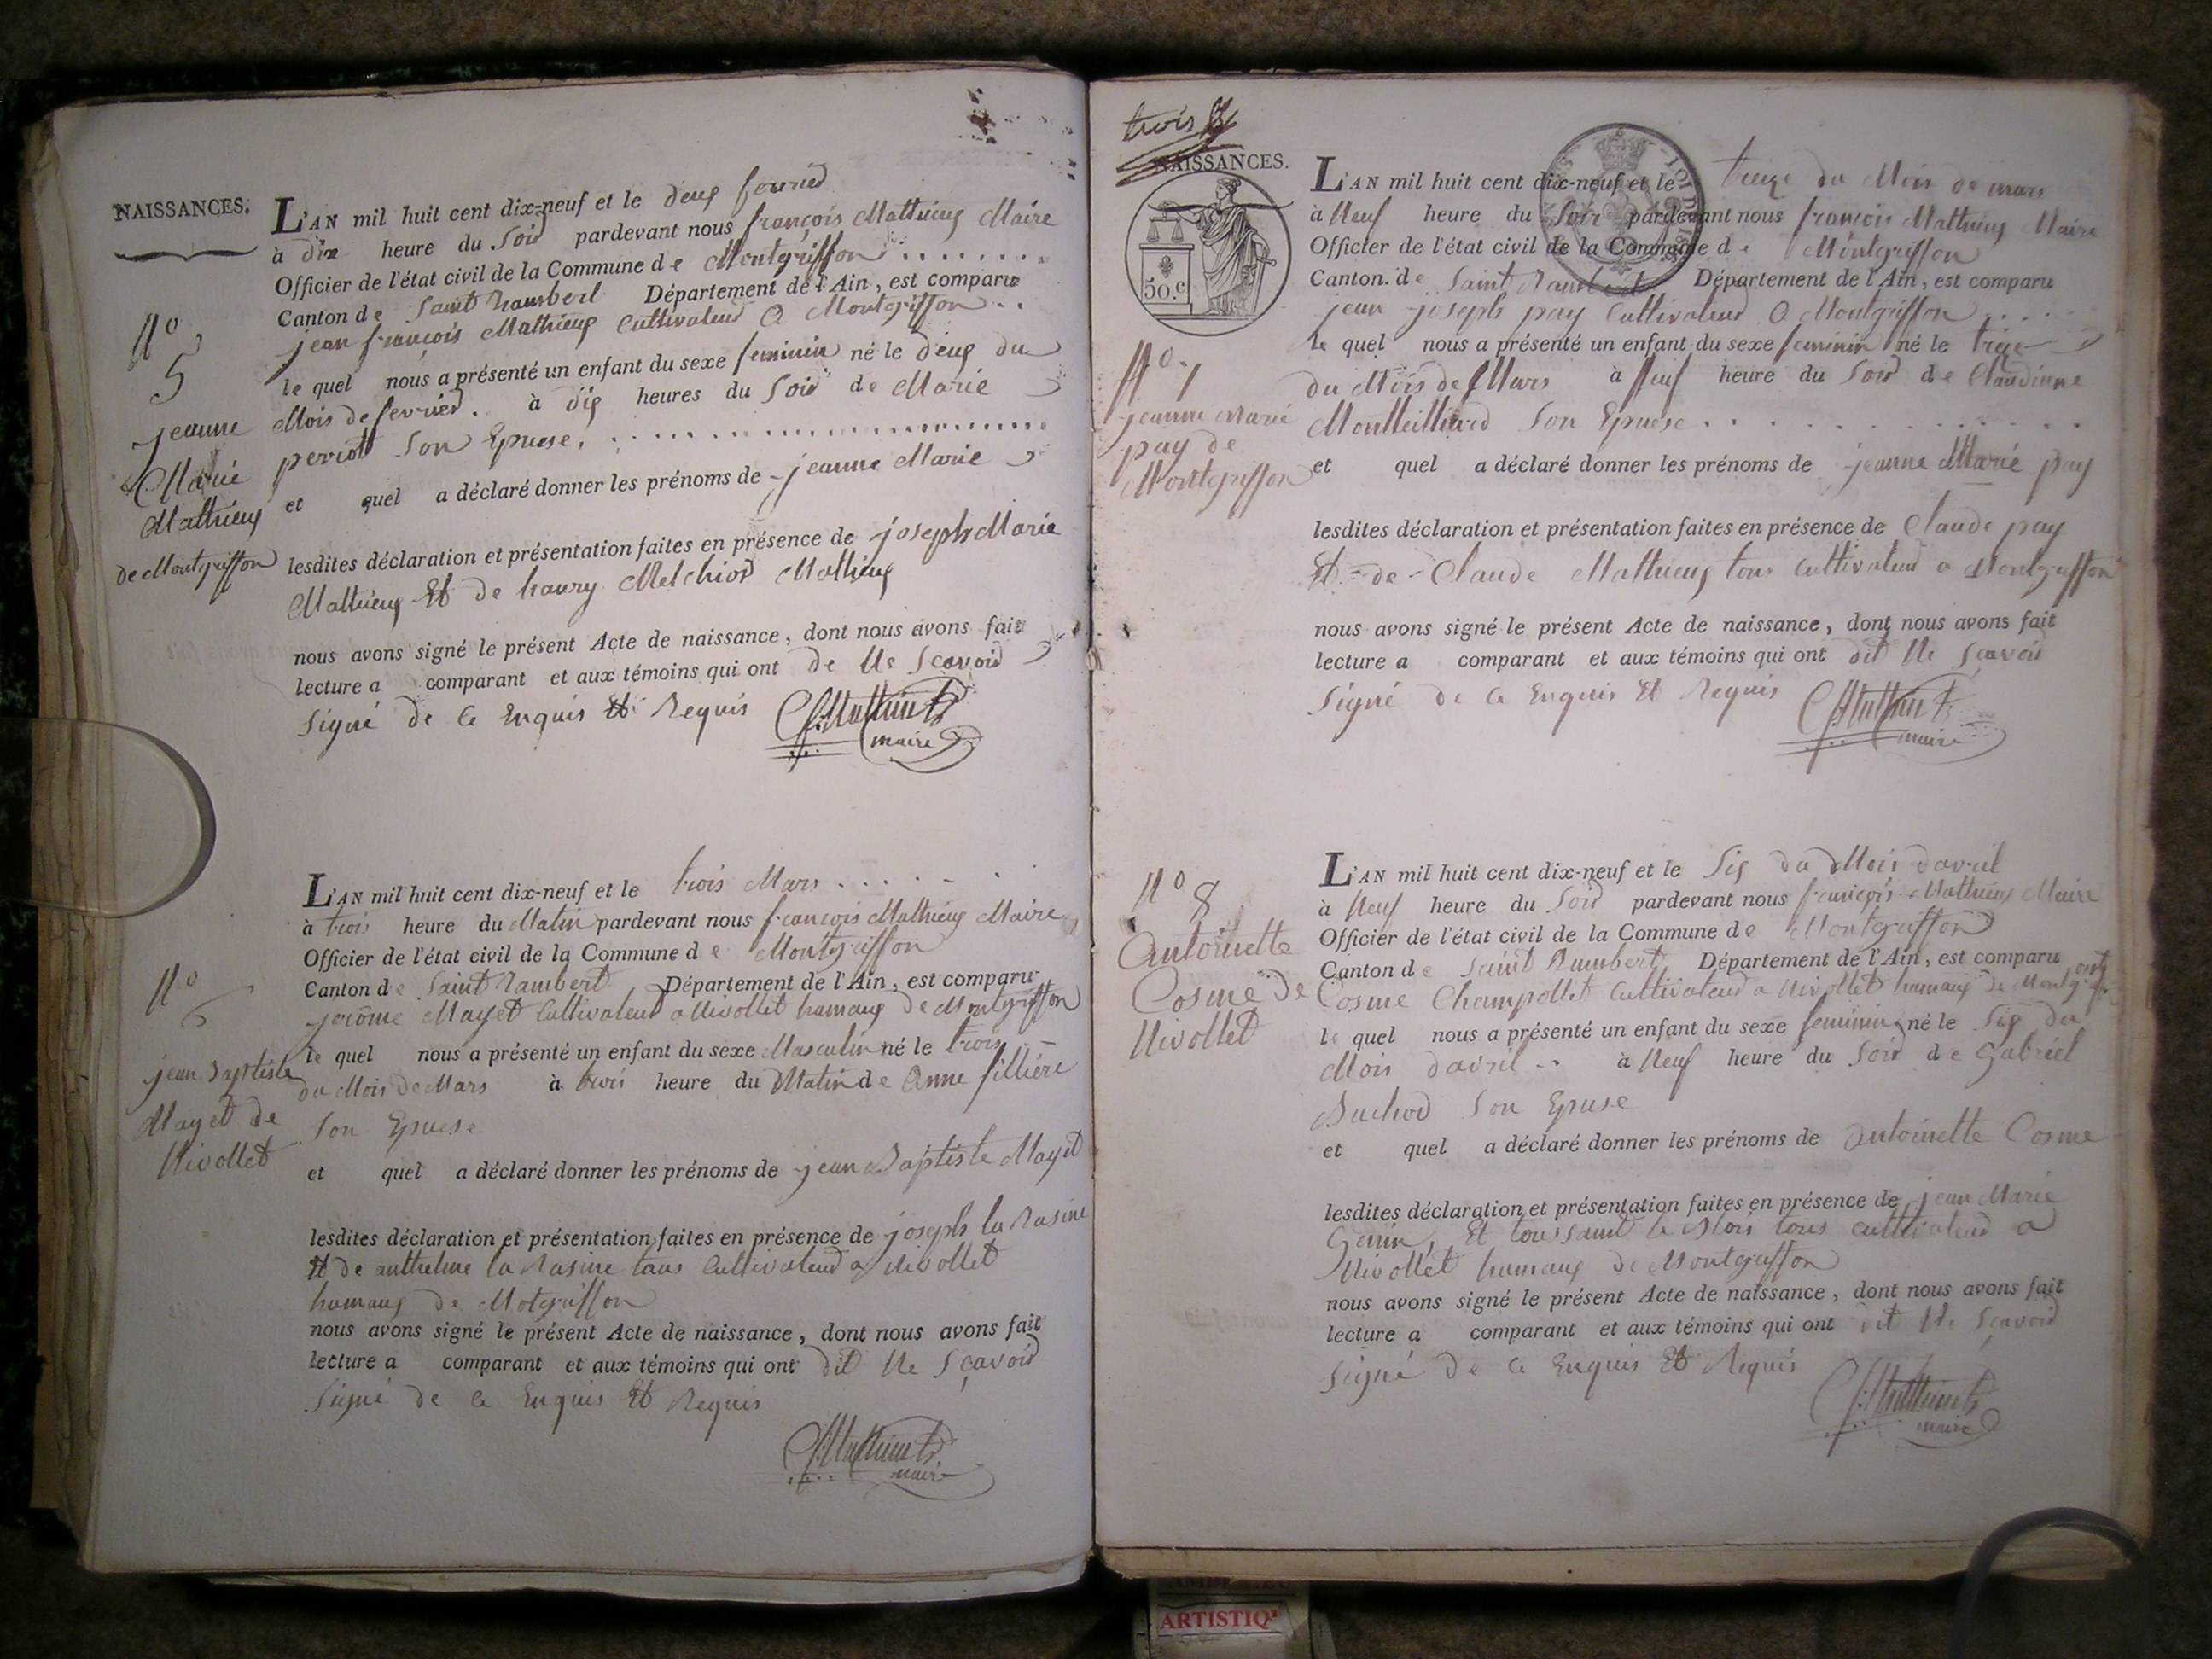 NAISSANCES.
L'AN mil huit cent dix-neuf et le deux fevried
à dix heure du Soid pardevant nous françois Mathieux Maire
Officier de l'état civil de la Commune de Montgriffon
Canton de Saint Rambert Département de l'Ain, est comparu
jean françois Mathieux Cultivateud a Montgriffon
le quel nous a présenté un enfant du sexe feminin né le deux du
Mois de fevried. à dix heures du Soid de Marie
perrot Son Epuese.
et quel a déclaré donner les prénoms de jeanne Marie
lesdites déclaration et présentation faites en présence de joseph Marie
Mathieux Et de haury Melchiod Mathieux
nous avons signé le présent Acte de naissance, dont nous avons fait
lecture a comparant et aux témoins qui ont de Ne Scavoid
Signé de Ce Enquis Et Requis
maire
N° 5
jeanne
Marie
Mathieux
de Montgriffon
L'AN mil huit cent dix-neuf et le trois Mars
à trois heure du Matin pardevant nous françois Mathieux Maire
Officier de l'état civil de la Commune de Montgriffon
Canton de Saint Rambert Département de l'Ain, est comparu
jerôme Mayet Cultivateud a Nivollet hamaux de Montgriffon
le quel nous a présenté un enfant du sexe Masculin né le trois
du Mois de Mars à trois heure du Matin de Anne filliére
Son Epuese
et quel a déclaré donner les prénoms de jean Baptiste Mayet
lesdites déclaration et présentation faites en présence de joseph la Rasine
Et de anthelme la Rasine tous Cultivateud a Nivollet
hamaux de Motgriffon
nous avons signé le présent Acte de naissance, dont nous avons fait
lecture a comparant et aux témoins qui ont dit Ne Sçavoid
Signé de Ce Enquis Et Requis
maire
N° 6
jean Baptiste
Mayet de
Nivollet
trois
NAISSANCES.
50.c
L'AN mil huit cent dix-neuf et le treize du Mois de mars
à Neuf heure du Soir pardevant nous françois Mathieux Maire
Officier de l'état civil de la Commune de Montgriffon
Canton de Saint Rambert Département de l'Ain, est comparu
jean joseph pay Cultivateud a Montgriffon
le quel nous a présenté un enfant du sexe feminin né le treize
du Mois de Mars à Neuf heure du Soid de Claudinne
Montteilliard Son Epuese
et quel a déclaré donner les prénoms de jeanne Marie pay
lesdites déclaration et présentation faites en présence de Claude pay
Et de Claude Mathieux tous Cultivateud a Montgriffon
nous avons signé le présent Acte de naissance, dont nous avons fait
lecture a comparant et aux témoins qui ont dit Ne Sçavoid
Signé de Ce Enquis Et Requis
maire
N° 7
jeanne Marie
pay de
Montgriffon
L'AN mil huit cent dix-neuf et le Six du Mois davril
à Neuf heure du Soid pardevant nous françois Mathieux Maire
Officier de l'état civil de la Commune de Montgriffon
Canton de Saint Rambert Département de l'Ain, est comparu
Cosme Champollet Cultivateud a Nivollet hamaux de Montg
le quel nous a présenté un enfant du sexe feminin né le Six du
Mois davril à Neuf heure du Soid de Gabriel
Buchod Son Epuse
et quel a déclaré donner les prénoms de Antoinette Cosme
lesdites déclaration et présentation faites en présence de jean Marie
Genin, Et toussaint le Blois tous cultivateud a
Nivollet hamaux de Montgriffon
nous avons signé le présent Acte de naissance, dont nous avons fait
lecture a comparant et aux témoins qui ont dit Ne Sçavoid
Signé de Ce Enquis Et Requis
maire
N° 8
Antoinette
Cosme de
Nivollet
ARTISTIQ